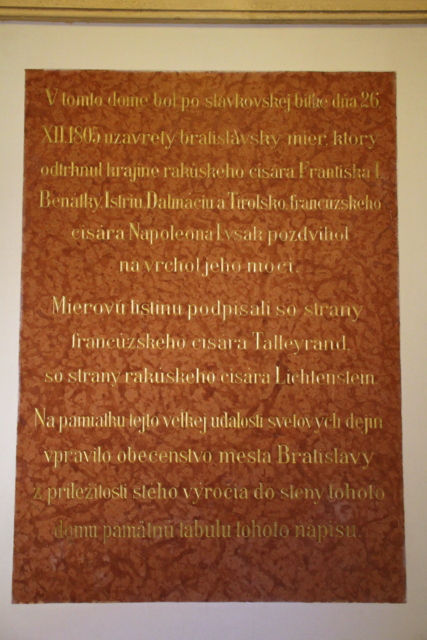 V tomto dome bol po slavkovskej bitke dňa 26.
XII.1805 uzavretý bratislavský mier, ktorý
odtrhnul krajine rakúskeho cisára Františka I.
Benátky, Istriu, Dalmáciu a Tirolsko, francúzskeho
cisára Napoleona I. však pozdvihol
na vrchol jeho moci.
Mierovú listinu podpísali so strany
francúzskeho cisára Talleyrand,
so strany rakúskeho cisára Lichtenstein.
Na pamiatku tejto veľkej udalosti svetových dejín
vpravilo obecenstvo mesta Bratislavy
z príležitosti stého výročia do steny tohoto
domu pamätnú tabuľu tohoto nápisu.